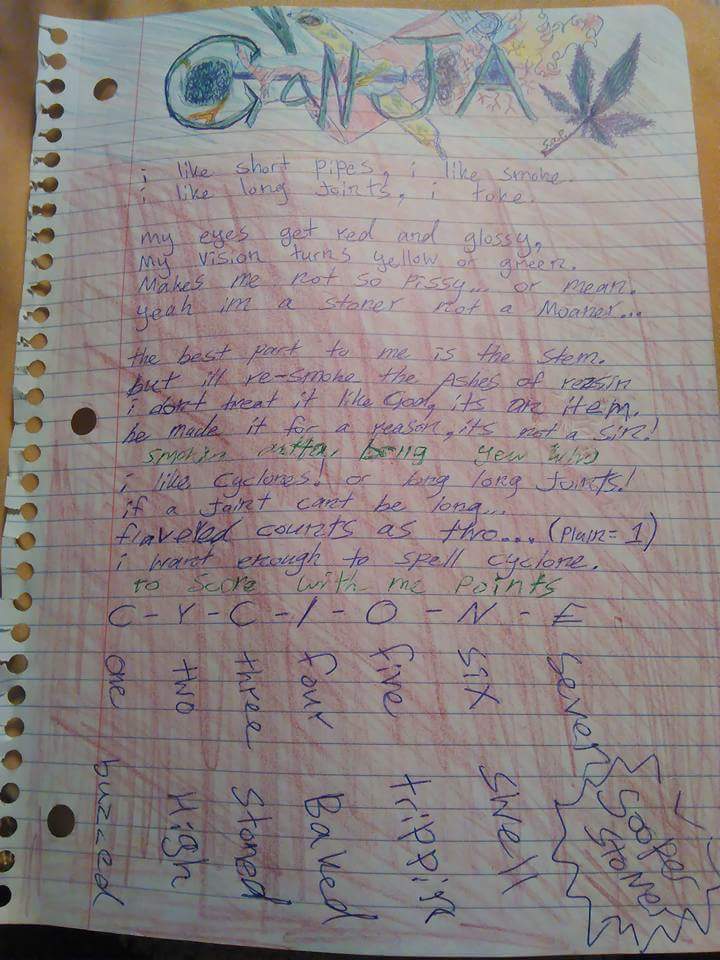 GaNJA
i like short pipes, i like smoke.
i like long joints, i toke.
my eyes get red and glossy,
My vision turns yellow or green.
Makes me not so pissy... or mean.
yeah im a stoner not a Moaner...
the best part to me is the stem.
but ill re-smoke the Ashes of rezsin
i dont treat it like God, its an item.
he made it for a reason, its not a sin!
smokin outta bong yew who
i like cyclones! or long long Joints!
if a Joint cant be long...
flavered counts as two... (Plain = 1)
i want enough to spell cyclone.
to score with me points
C - Y - C - l - O - N - E
one two three four five six seven
buzzed High Stoned Baked trippin swell Sooper Stoner